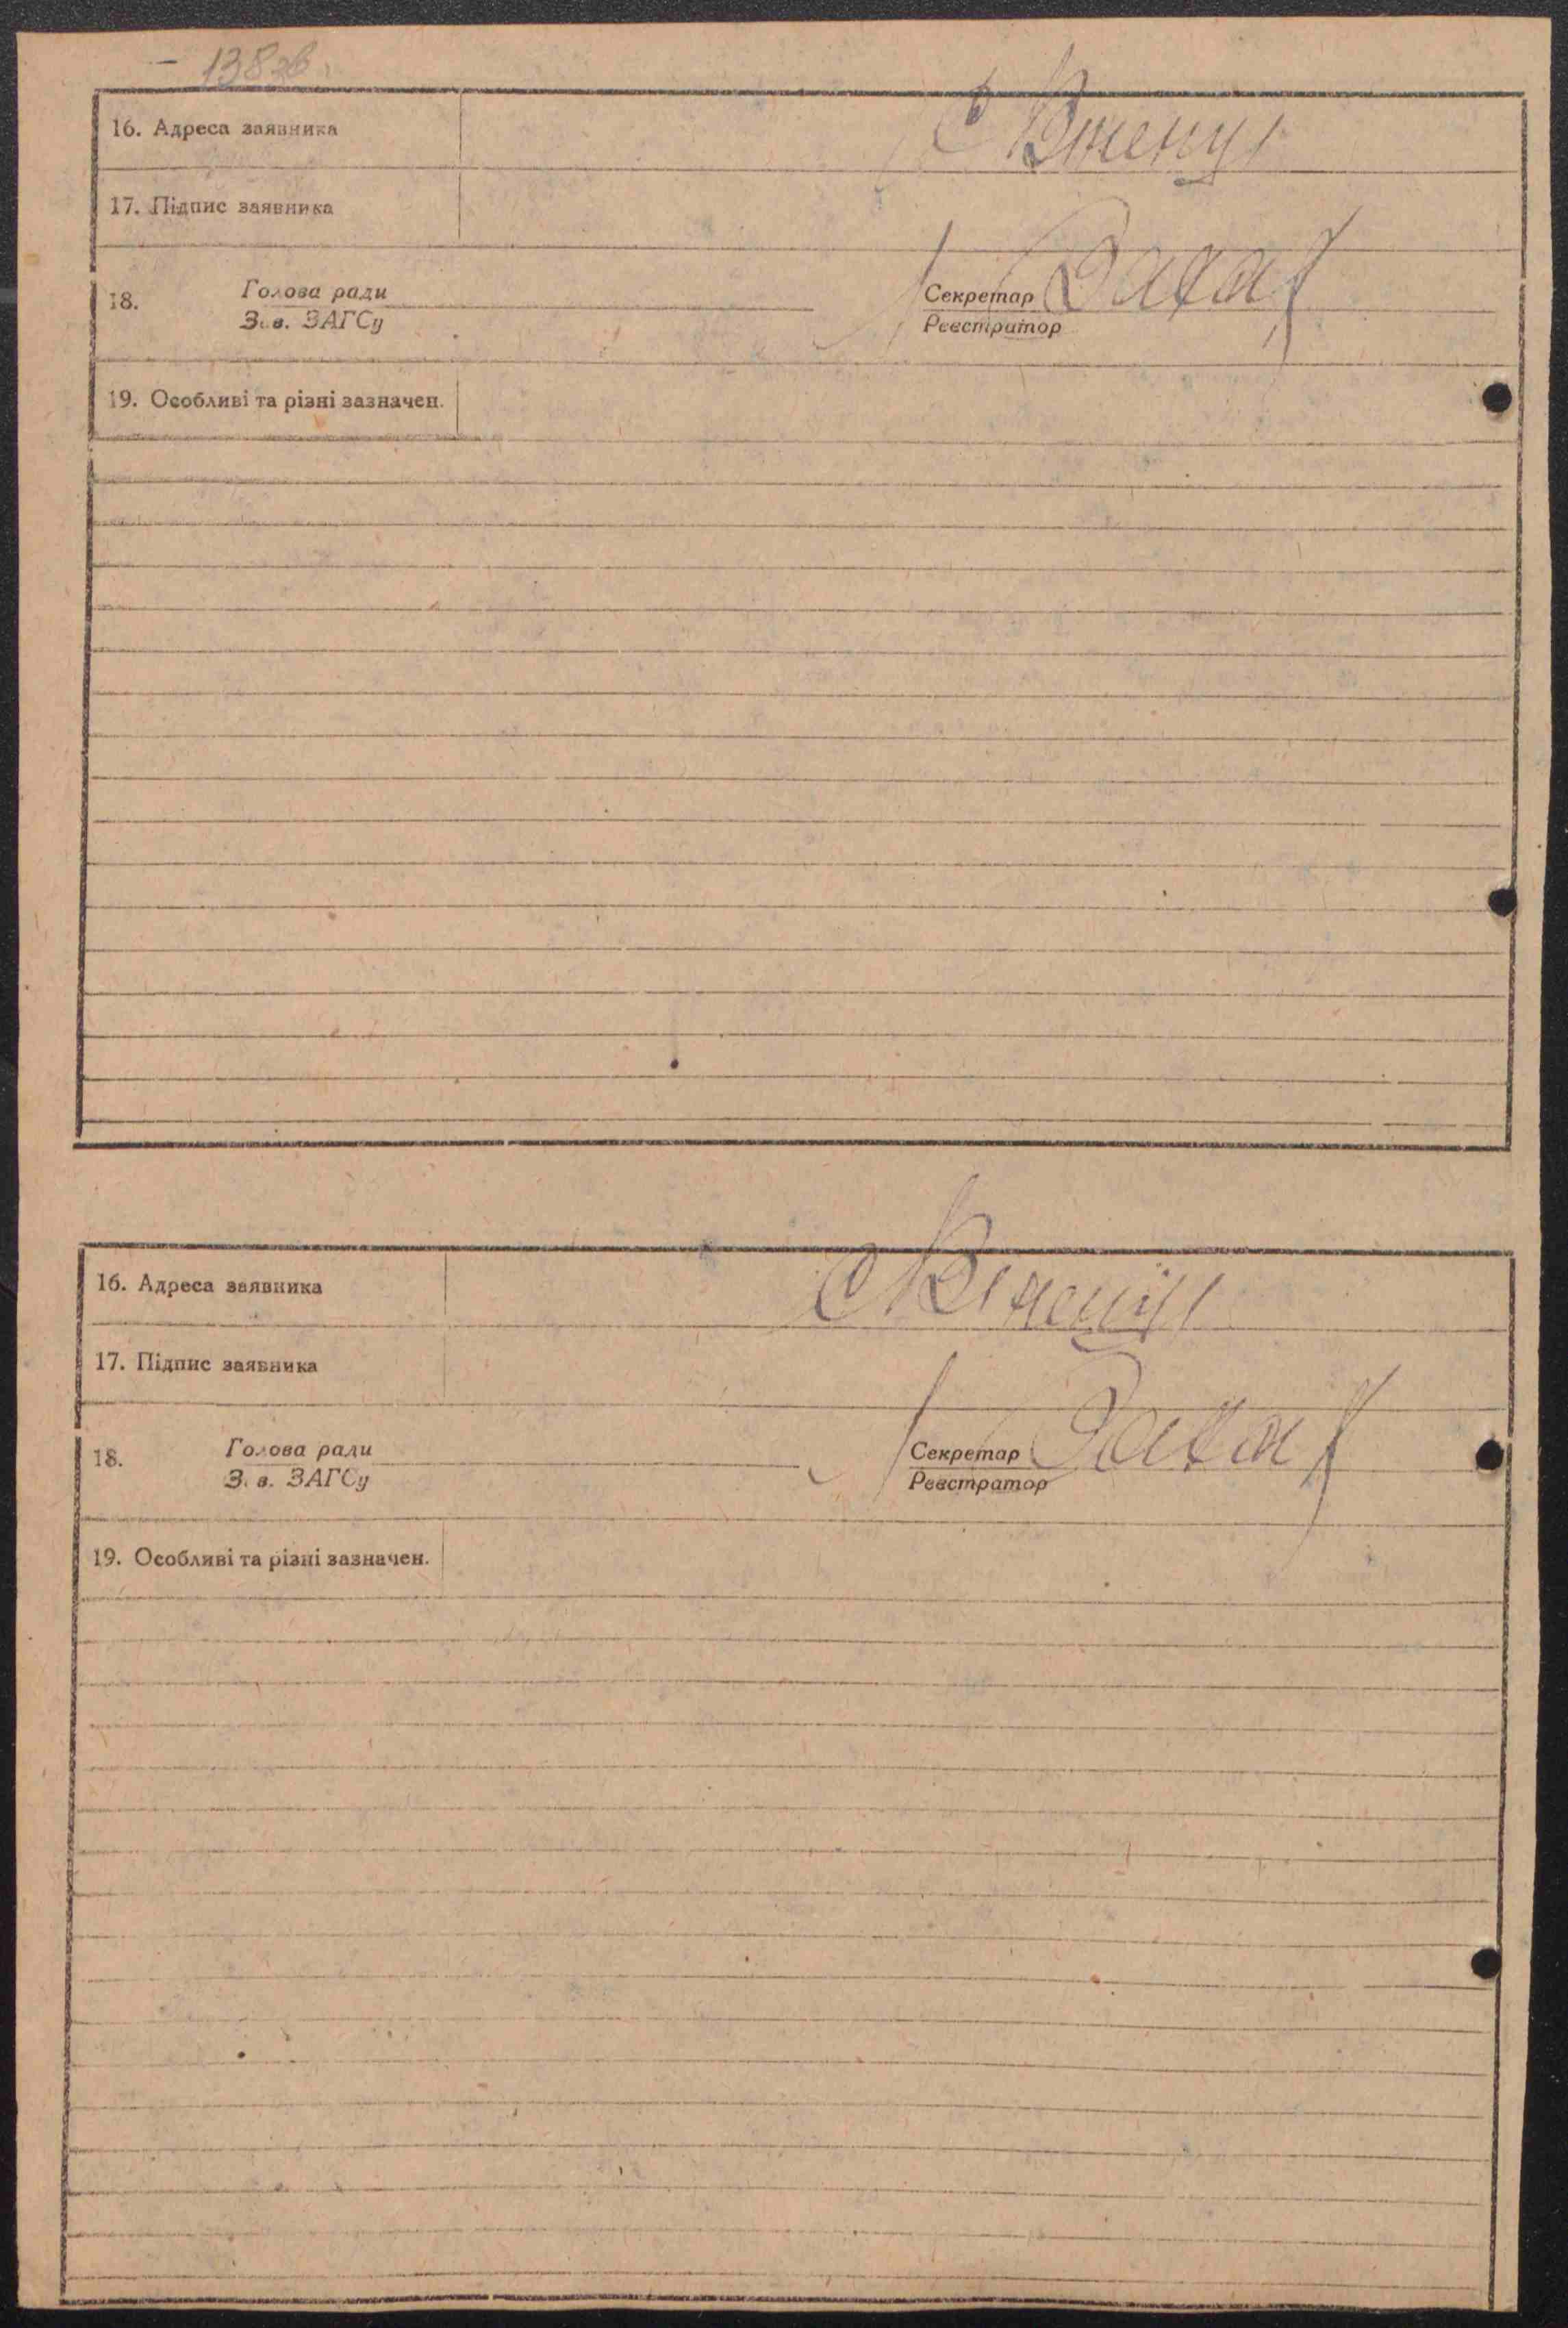 138зв.
16. Адреса заявника
17. Підпис заявника
18. Голова ради Секретар
Зав. ЗАГСу Реєстратор
19. Особливі та різні зазначен.
16. Адреса заявника
17. Підпис заявника
18. Голова ради Секретар
Зав. ЗАГСу Реєстратор
19. Особливі та різні зазначен.